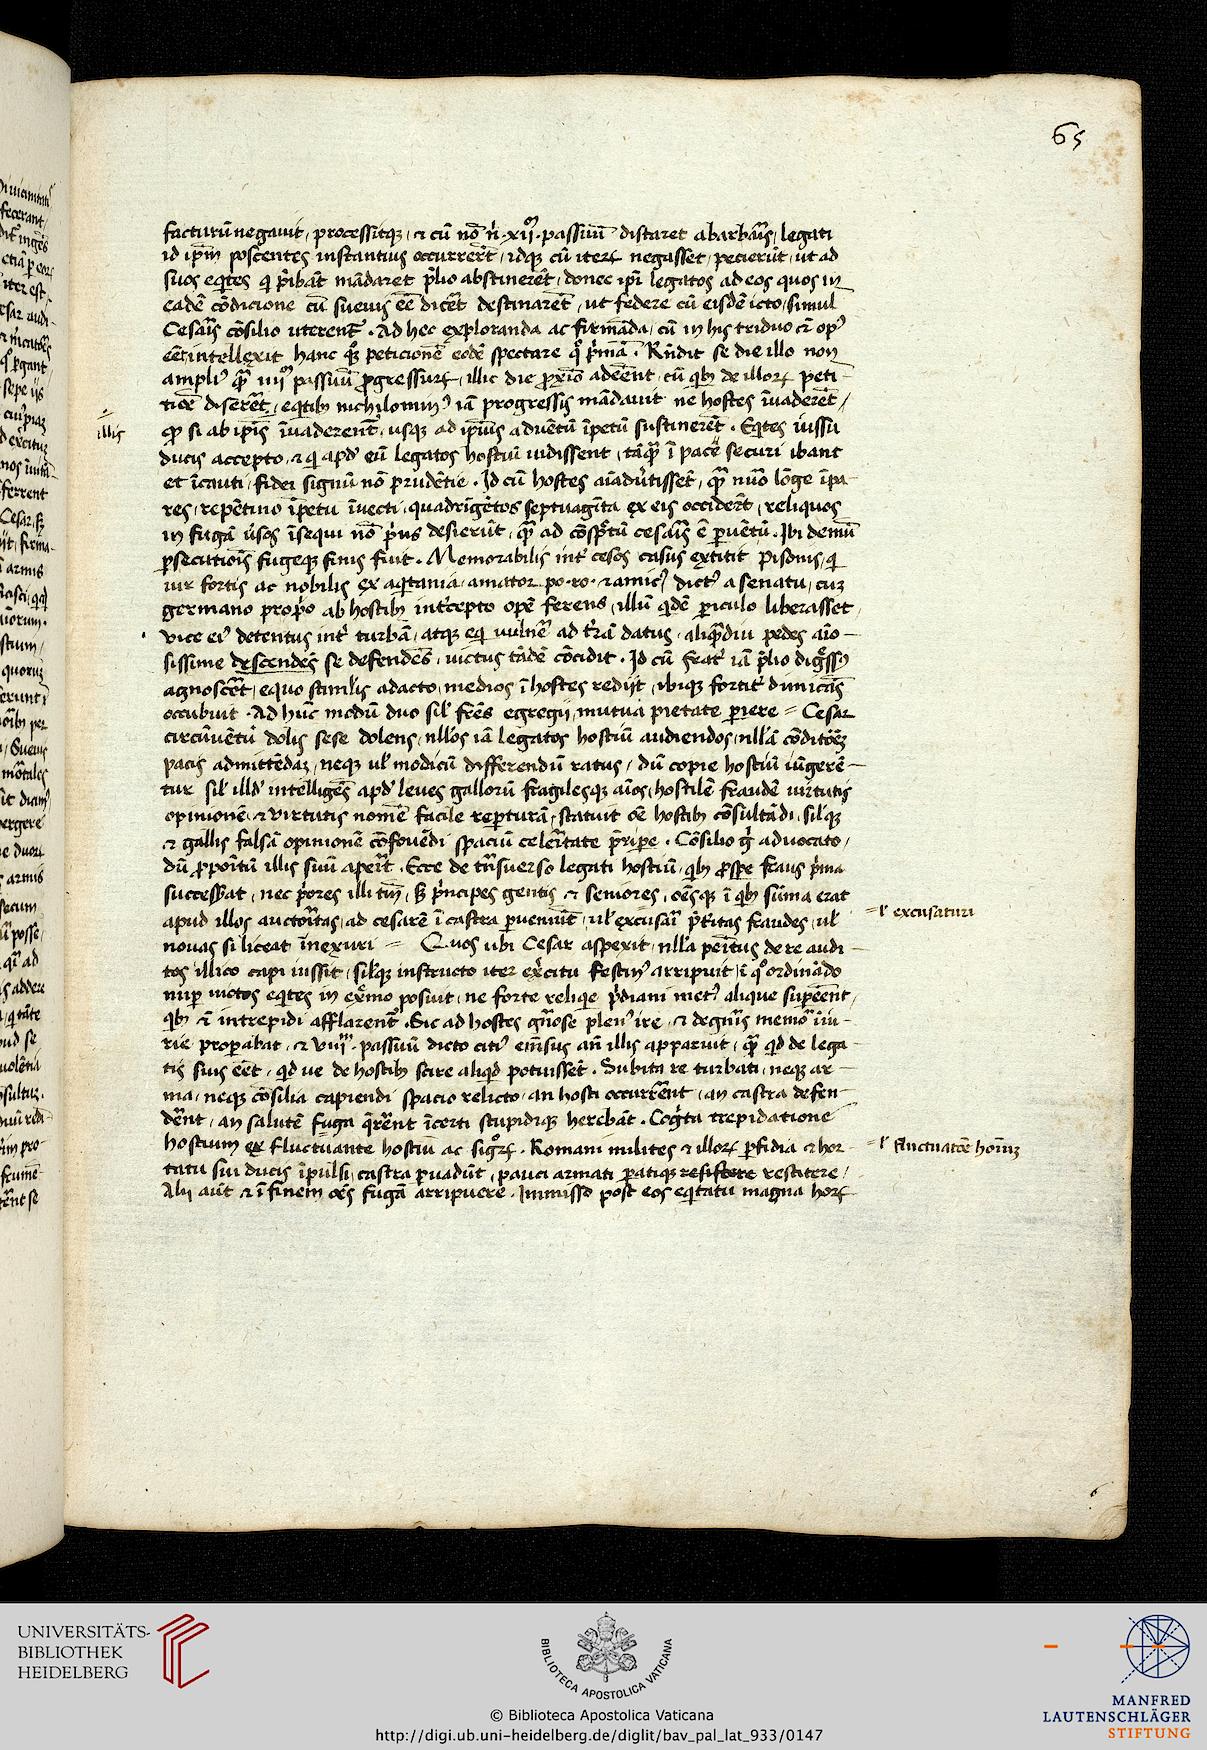 65
facturū negauit / processitq; / et cū nō n̄ xii passuū distaret abarbaris / legati
id ipm̄ poscentes instantius occurrer̄t / idq; cū iteꝝ negasset / petierūt / ut ad
suos eq̄tes q̄ p̄ibāt mādaret p̄lio abstinerēt / donec ipi legatos ad eos quos in
eadē cōdicione cū sueuis ēē dicēt destinarēt / ut federe cū eisdē icto / simul
Cesaris cōsilio uterent̄ . Ad hec exploranda ac firmāda / cū in his triduo
intellexit hanc q̄ꝫ peticionē eodē spectare qͦ p̄mā . Rn̄dit se die illo non
ampliꝰ qͣ̄ iiii passuū ꝓgressuꝝ / illic die ꝓxīo adēēnt / cū qb; de illoꝝ peti-
ticē disererēt / eqtib; nichilominꝰ iā progressis mādauit ne hostes īuaderēt /
illis
ꝙ si ab ip̄is īuaderent̄ / usq; ad ipiūs aduētū īpetū sustinerēt . Eqtes iussu
ducis accepto / et q̄ apd̓ eū legatos hostiū uidissent / tāqͣ̄ ī pace securi ibant
et īcauti / fidei signū nō prudētie . Id cū hostes aīaduertissēt / qͣ̄ nūo lōge īpa-
res / repētino īpetu īuecti / quadrigētos septuagīta ex eis occider̄t / reliquos
in fugā ūsos īsequi nō p̄us desierūt / qͣ̄ ad cōspctū cesaris ē ꝑuētū . Ibi demū
ꝑsecutiōis fugeq; finis fuit . Memorabilis int̓ cesos casus extitit pisonis / q̄
uir fortis ac nobilis ex aqtania / amator po . ro . et amicꝰ dictꝰ a senatu / cuꝫ
germano prop̄o ab hostib; int̓cepto opē ferens / illū qdē ꝑiculo liberasset /
vice eiꝰ detentus int̓ turbā / atq; eq̄ uuln̄e ad t̓rā datus / aliqͣ̄diu pedes aīo-
sissime descendēs se defendēs / uictus tādē cōcidit . Id cū frat̓ iā p̄lio digssꝰ
agnoscēt / equo stimlis adacto / medios ī hostes redijt / ibiq; fortit̓ dimicās
occubuit . Ad hūc modū duo sil̓ fr̄es egregij / mutua pietate ꝑiere = Cesar
circūuētū dolis sese dolens / nllos iā legatos hostiū audiendos / nllā cōditōēꝫ
pacis admittēdaꝫ / neq; ul̓ modicū differendū ratus / dū copie hostiū iūgerē-
tur sil̓ illd̓ intelligēs apd̓ leues gallorū fragilesq; aīos / hostilē fraudē uirtutis
opinionē / et virtutis nomē facile repturā / statuit ōē hostib; cōsultādi / silq;
et gallis falsā opinionē cōfouēdi spaciū celeritate p̄ripe . Cōsilio gͥ aduocato /
dū ꝓpoītū illis suū aperit . Ecce de trn̄suerso legati hostiū / qb; ꝓspe fraus p̄ma
successerat / nec p̄ores illi tm̄ / sꝫ p̄ncipes gentis et seniores / oēsq; ī qb; sūma erat
apud illos auctoritas / ad cesarē ī castra ꝑueniūt / ul̓ excusaī p̄teritas fraudes / ul̓
=l̓ excusaturi
nouas si liceat īnexuri = Quos ubi Cesar aspexit / nlla penitus de re audi-
tos illico capi iussit / silq; instructo iter exc̓itu festinꝰ arripuit / ī qͦ ordinādo
nup uictos eqtes in ext̓mo posuit / ne forte reliqe p̄diani metꝰ alique supēēnt /
qb; et intrepidi afflarent̄ . Sic ad hostes gn̄ose plenꝰ ire / et degn̄is memor iīu-
rie properabat / et viii passuū dicto citiꝰ emēsus an̄ illis apparuit / qͣ̄ qd de lega-
tis suis ēēt / qd ue de hostib; scire aliqd potuissēt . Subita re turbati / neq; ar-
ma / neq; cōsilia capiendi spacio relicto / an hosti occurrerēnt / an castra defen-
derēnt / an salutē fuga q̄rerēnt īcerti stupidiq; herebāt . Cogͥta trepidatione
hostium ex fluctuante hostiū ac signoꝝ . Romani milites et illoꝝ ꝑfidia et hor-
=l̓ fluctuatōe hoīuꝫ
tatu sui ducis īpulsi / castra ꝑuadūt / pauci armati ꝑatiq; resistere restitere /
Alij aūt et ī finem oēs fugā arripuere . Immisso post eos eqitatu magna hoꝝ
UNIVERSITÄTS-
BIBLIOTHEK
HEIDELBERG
BIBLIOTECA APOSTOLICA VATICANA
© Biblioteca Apostolica Vaticana
http://digi.ub.uni-heidelberg.de/diglit/bav_pal_lat_933/0147
MANFRED
LAUTENSCHLÄGER
STIFTUNG